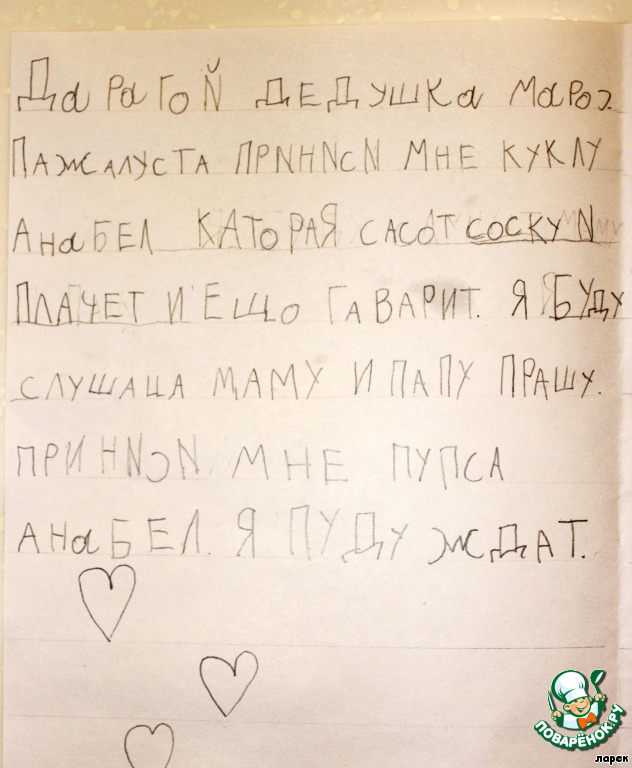 ДаРаГоЙ ДЕДУШКа МаРОЗ.
ПАЖАЛУСТА ПРИНИСИ МНЕ КУКЛУ
АНаБЕЛ КАТоРАЯ САСОТ СОСКУ И
ПЛАЧЕТ И ЕЩО ГаВАРИТ. Я БУДУ
СЛУШАЦА МАМУ И ПАПУ ПРАШУ.
ПРИНИСИ МНЕ ПУПСА
АНаБЕЛ. Я ПУДУ ЖДАТ.
ПОВАРЁНОК.РУ
ларек